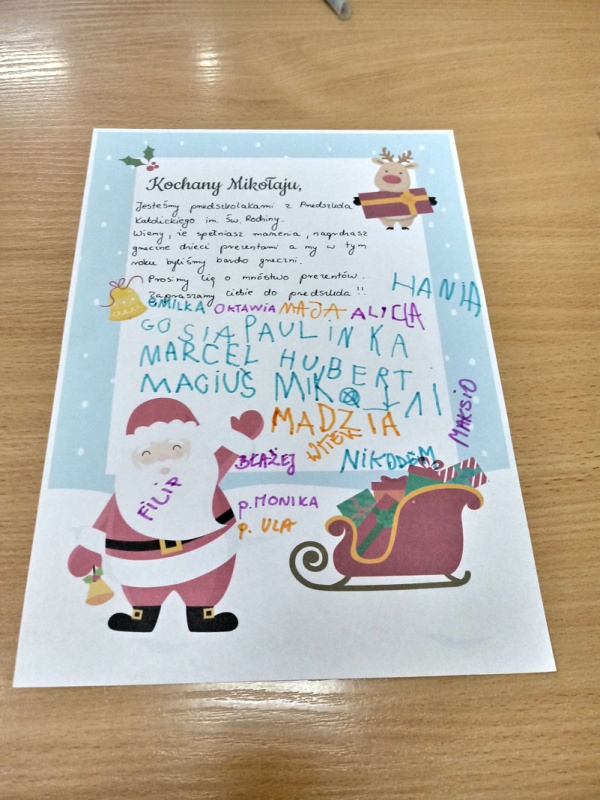 Kochany Mikołaju,
Jesteśmy przedszkolakami z Przedszkola
Katolickiego im. Św. Rodziny.
Wiemy, że spełniasz marzenia, nagradzasz
grzeczne dzieci prezentami a my w tym
roku byliśmy bardzo grzeczni.
Prosimy Cię o mnóstwo prezentów.
Zapraszamy Ciebie do przedszkola!!
HANIA
EMILKA OKTAWIA MAJA ALICJA
GOSIA PAULINKA
MARCEL HUBERT
MACIUŚ
MADZIA
MAKSIO
WITEK
BŁAŻEJ NIKODEM
FILIP
p. MONIKA
p. ULA